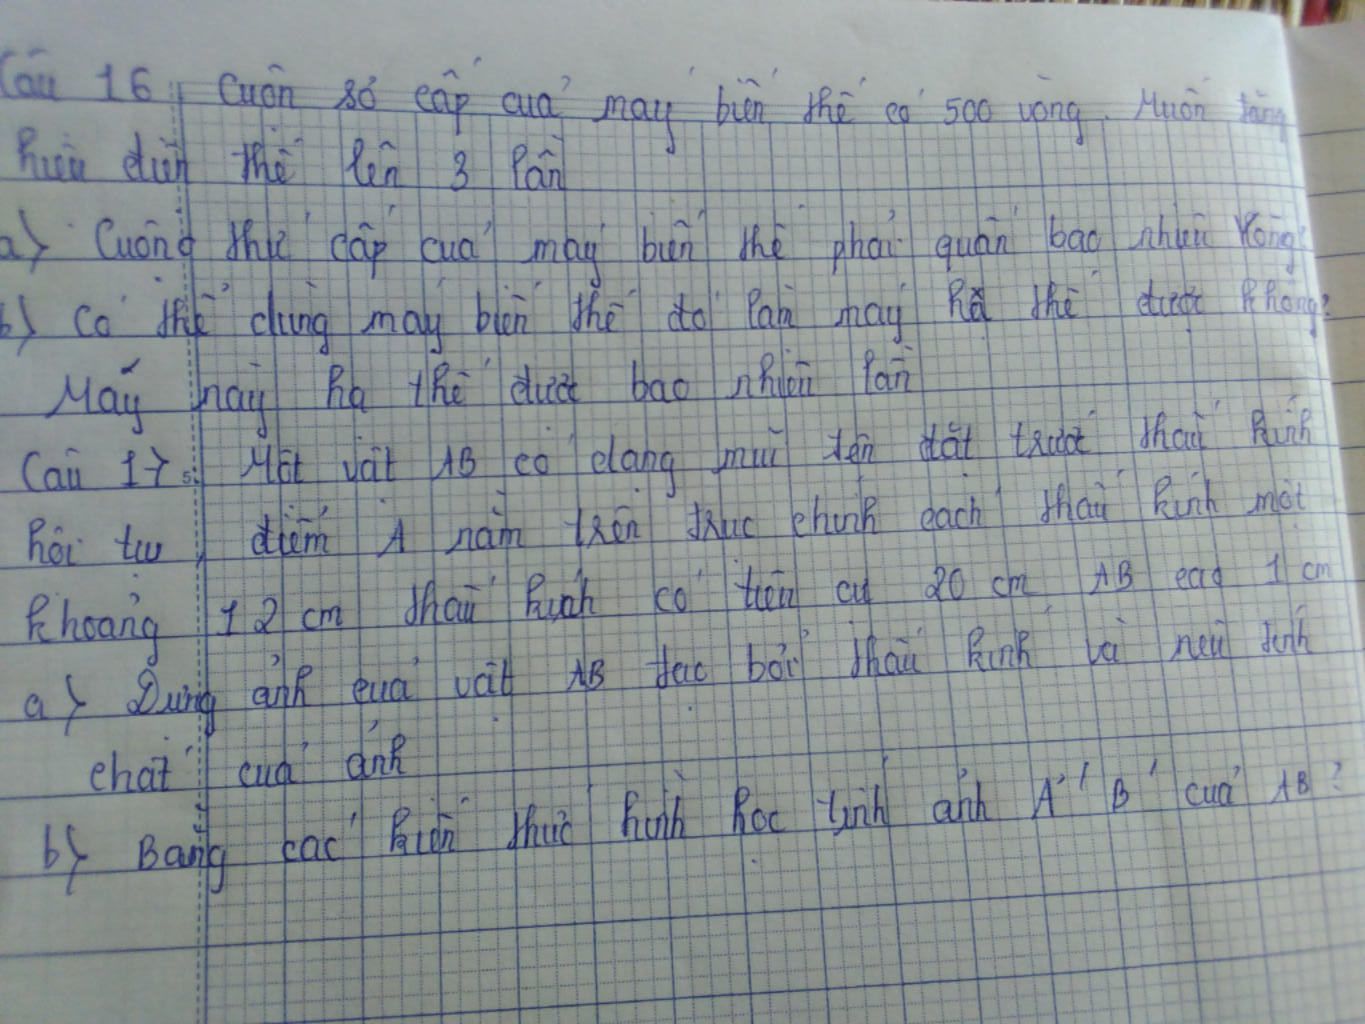 Câu 16: Cuôn sơ cấp của máy biến thế có 500 vòng. Muốn tăng
hiệu điện thế lên 3 lần
a) Cuông thứ cấp của máy biến thế phải quấn bao nhiêu vòng?
b) Có thể dùng máy biến thế đó làm máy hạ thế được không?
Máy này hạ thế được bao nhiên lần
Câu 17: Một vật AB có dạng mũi tên đặt trước thấu kính
hội tụ, điểm A nằm trên trục chính cách thấu kính một
khoảng 12 cm thấu kính có tiêu cự 20 cm AB cao 1 cm
a) Dựng ảnh của vật AB tạo bởi thấu kính và nêu tính
chất của ảnh
b) Bằng các kiến thức hình học tính ảnh A'B' của AB?